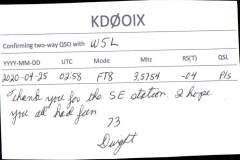 KDØOIX
Confirming two-way QSO with W5L
YYYY-MM-DD UTC Mode Mhz RS(T) QSL
2020-04-25 02:58 FT8 3.5754 -04 Pls
Thank you for the SE station. I hope
you all had fun
73
Dwight